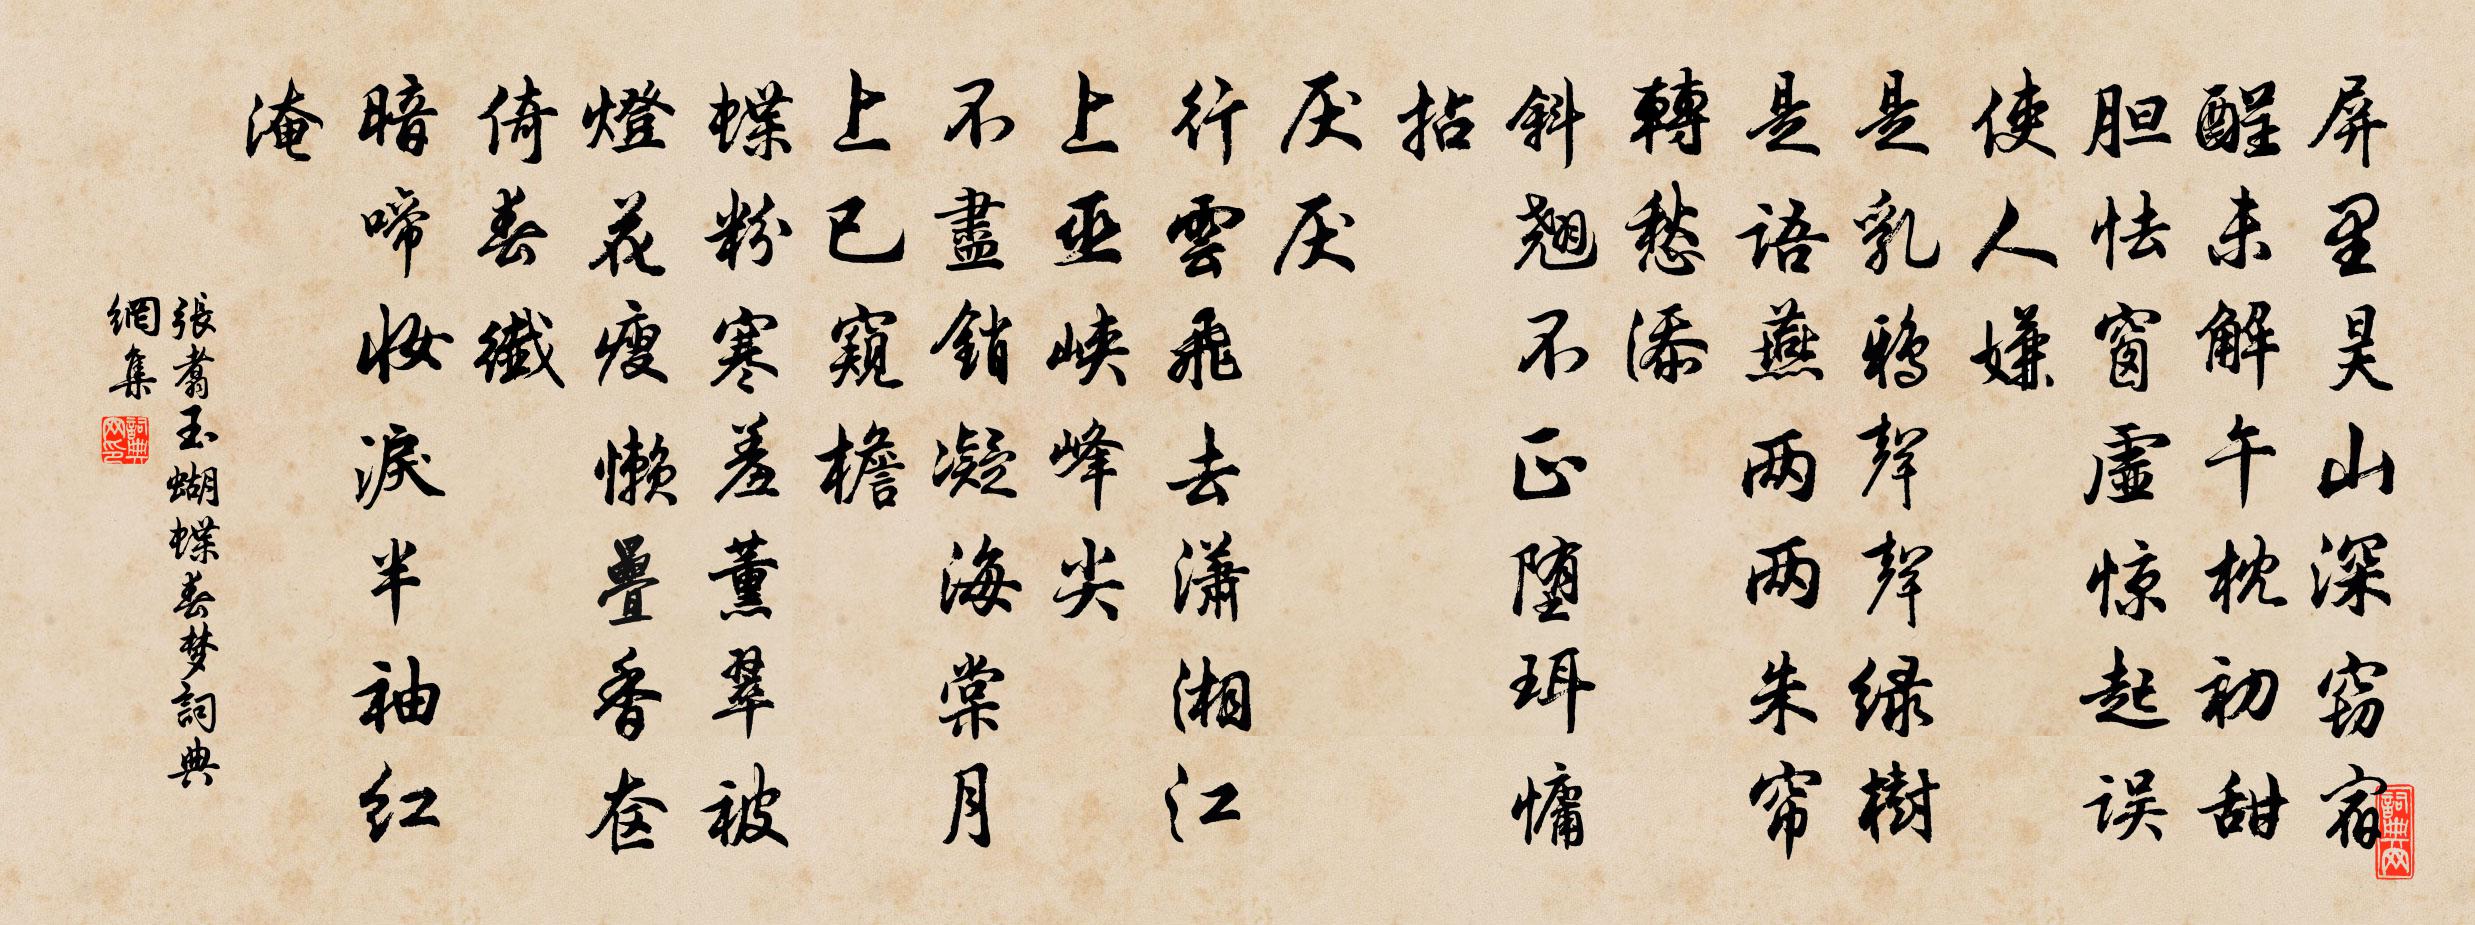 屏里吴山深窈宿
醒未解午枕初甜
胆怯窗虛惊起误
使人嫌
是乳鸦声声绿樹
是语燕两两朱帘
轉愁添
斜翘不正堕珥慵
拈
厌厌
行雲飛去潇湘江
上巫峡峰尖
不盡銷凝海棠月
上已窺檐
蝶粉寒羞薰翠被
燈花瘦懒疊香奁
倚春纖
暗啼妆淚半袖红
淹
張翥玉蝴蝶春梦詞典
網集
詞典网印
詞典网